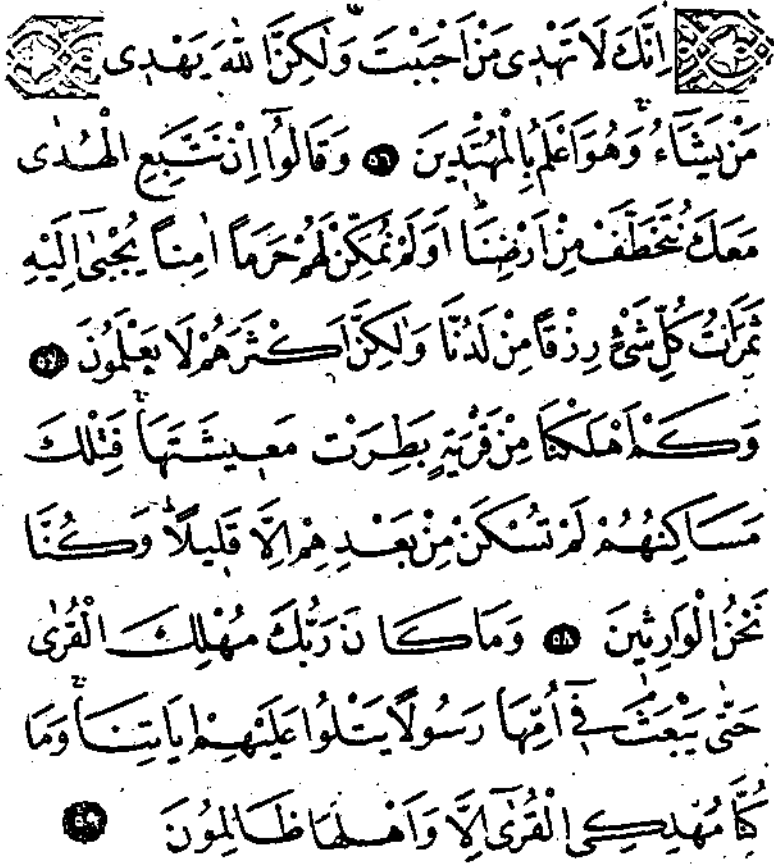 اِنَّكَ لَا تَهْدٖى مَنْ اَحْبَبْتَ وَلٰكِنَّ اللّٰهَ يَهْدٖى
مَنْ يَشَٓاءُ وَهُوَ اَعْلَمُ بِالْمُهْتَدٖينَ ﴿٥٦﴾ وَقَالُٓوا اِنْ نَتَّبِعِ الْهُدٰى
مَعَكَ نُتَخَطَّفْ مِنْ اَرْضِنَا اَوَلَمْ نُمَكِّنْ لَهُمْ حَرَماً اٰمِناً يُجْبٰٓى اِلَيْهِ
ثَمَرَاتُ كُلِّ شَیْءٍ رِزْقاً مِنْ لَدُنَّا وَلٰكِنَّ اَكْثَرَهُمْ لَا يَعْلَمُونَ ﴿٥٧﴾
وَكَمْ اَهْلَكْنَا مِنْ قَرْيَةٍ بَطِرَتْ مَعٖيشَتَهَا فَتِلْكَ
مَسَاكِنُهُمْ لَمْ تُسْكَنْ مِنْ بَعْدِهِمْ اِلَّا قَلٖيلاً وَكُنَّا
نَحْنُ الْوَارِثٖينَ ﴿٥٨﴾ وَمَا كَانَ رَبُّكَ مُهْلِكَ الْقُرٰى
حَتّٰى يَبْعَثَ فٖٓى اُمِّهَا رَسُولاً يَتْلُوا عَلَيْهِمْ اٰيَاتِنَا وَمَا
كُنَّا مُهْلِكِى الْقُرٰٓى اِلَّا وَاَهْلُهَا ظَالِمُونَ ﴿٥٩﴾